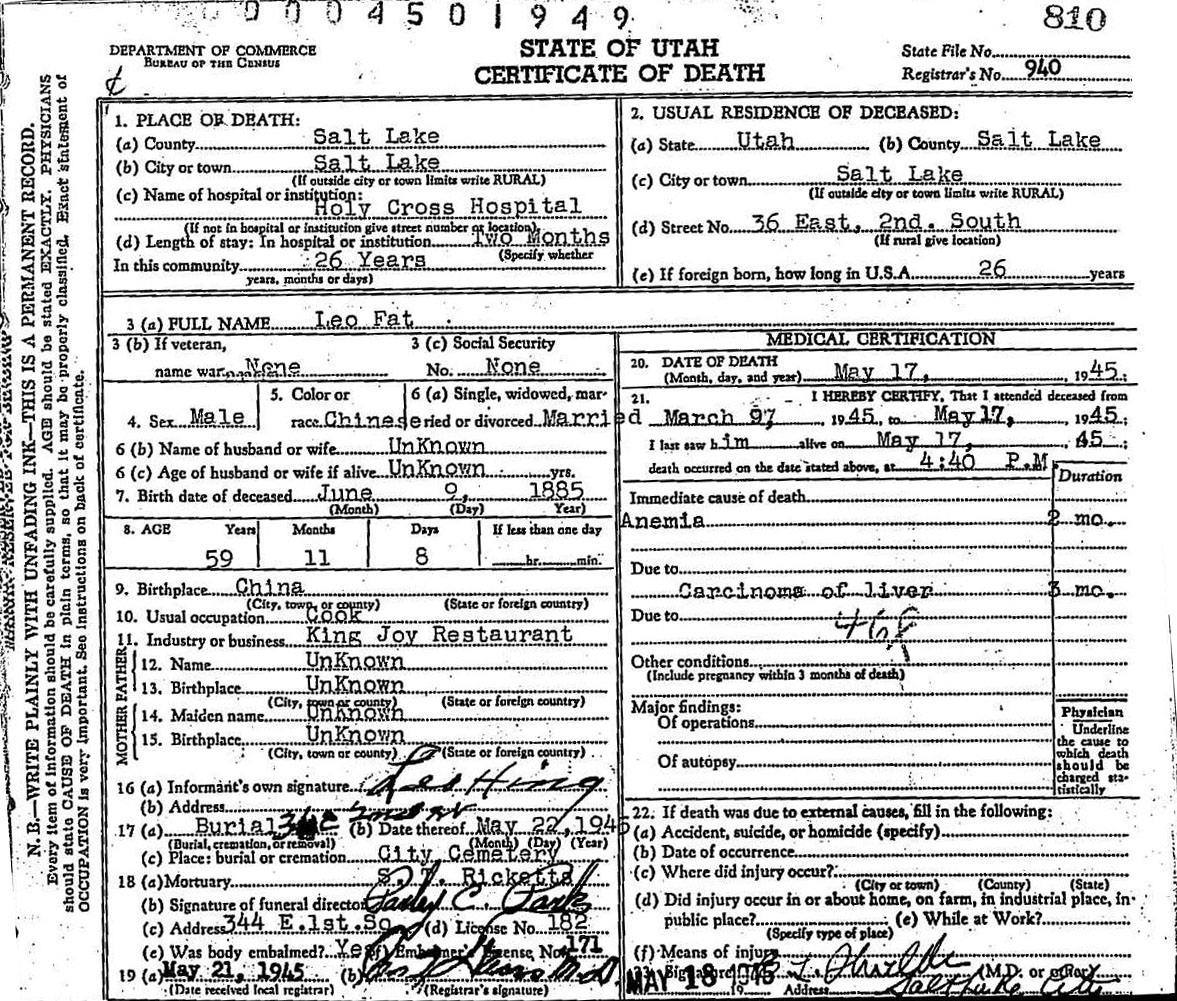 0004501949
810
DEPARTMENT OF COMMERCE
BUREAU OF THE CENSUS
STATE OF UTAH
CERTIFICATE OF DEATH
State File No.
Registrar's No. 940
N. B.—WRITE PLAINLY WITH UNFADING INK—THIS IS A PERMANENT RECORD.
Every item of information should be carefully supplied. AGE should be stated EXACTLY. PHYSICIANS
should state CAUSE OF DEATH in plain terms, so that it may be properly classified. Exact statement of
OCCUPATION is very important. See instructions on back of certificate.
1. PLACE OF DEATH:
(a) County Salt Lake
(b) City or town Salt Lake
(If outside city or town limits write RURAL)
(c) Name of hospital or institution:
Holy Cross Hospital
(If not in hospital or institution give street number or location)
(d) Length of stay: In hospital or institution Two Months
(Specify whether
In this community 26 Years
years, months or days)
2. USUAL RESIDENCE OF DECEASED:
(a) State Utah (b) County Salt Lake
(c) City or town Salt Lake
(If outside city or town limits write RURAL)
(d) Street No. 36 East, 2nd. South
(If rural give location)
(e) If foreign born, how long in U.S.A. 26 years
3 (a) FULL NAME Leo Fat
3 (b) If veteran,
name war None
3 (c) Social Security
No. None
4. Sex Male
5. Color or
race Chinese
6 (a) Single, widowed, mar-
ried or divorced Married
6 (b) Name of husband or wife UnKnown
6 (c) Age of husband or wife if alive UnKnown yrs.
7. Birth date of deceased June 9, 1885
(Month) (Day) Year)
8. AGE Years Months Days If less than one day
59 11 8 hr. min.
9. Birthplace China
(City, town, or county) (State or foreign country)
10. Usual occupation Cook
11. Industry or business King Joy Restaurant
FATHER
12. Name UnKnown
13. Birthplace UnKnown
(City, town or county) (State or foreign country)
MOTHER
14. Maiden name UnKnown
15. Birthplace UnKnown
(City, town or county) (State or foreign country)
16 (a) Informant's own signature Leo Hing
(b) Address
17 (a) Burial (b) Date thereof May 22, 1945
(Burial, cremation, or removal) (Month) (Day) (Year)
(c) Place: burial or cremation City Cemetery
18 (a) Mortuary
(b) Signature of funeral director
(c) Address 344 E. 1st. So. (d) License No. 182
(e) Was body embalmed? Yes (f) Embalmer's License No. 171
19 (a) May 21, 1945 (b)
(Date received local registrar) (Registrar's signature)
MEDICAL CERTIFICATION
20. DATE OF DEATH
(Month, day, and year) May 17, 1945;
21. I HEREBY CERTIFY, That I attended deceased from
March 1945, to May 17, 1945;
I last saw him alive on May 17, 45;
death occurred on the date stated above, at 4:40 P.M
Duration
Immediate cause of death
Anemia 2 mo.
Due to
Carcinoma of liver 3 mo.
Due to
Other conditions
(Include pregnancy within 3 months of death)
Major findings:
Of operations
Of autopsy
Physician
Underline
the cause to
which death
should be
charged sta-
tistically
22. If death was due to external causes, fill in the following:
(a) Accident, suicide, or homicide (specify)
(b) Date of occurrence
(c) Where did injury occur?
(City or town) (County) (State)
(d) Did injury occur in or about home, on farm, in industrial place, in
public place? (e) While at Work?
(Specify type of place)
(f) Means of injury
23. Signature (M.D. or other)
MAY 18 1945
19 Address Salt Lake City